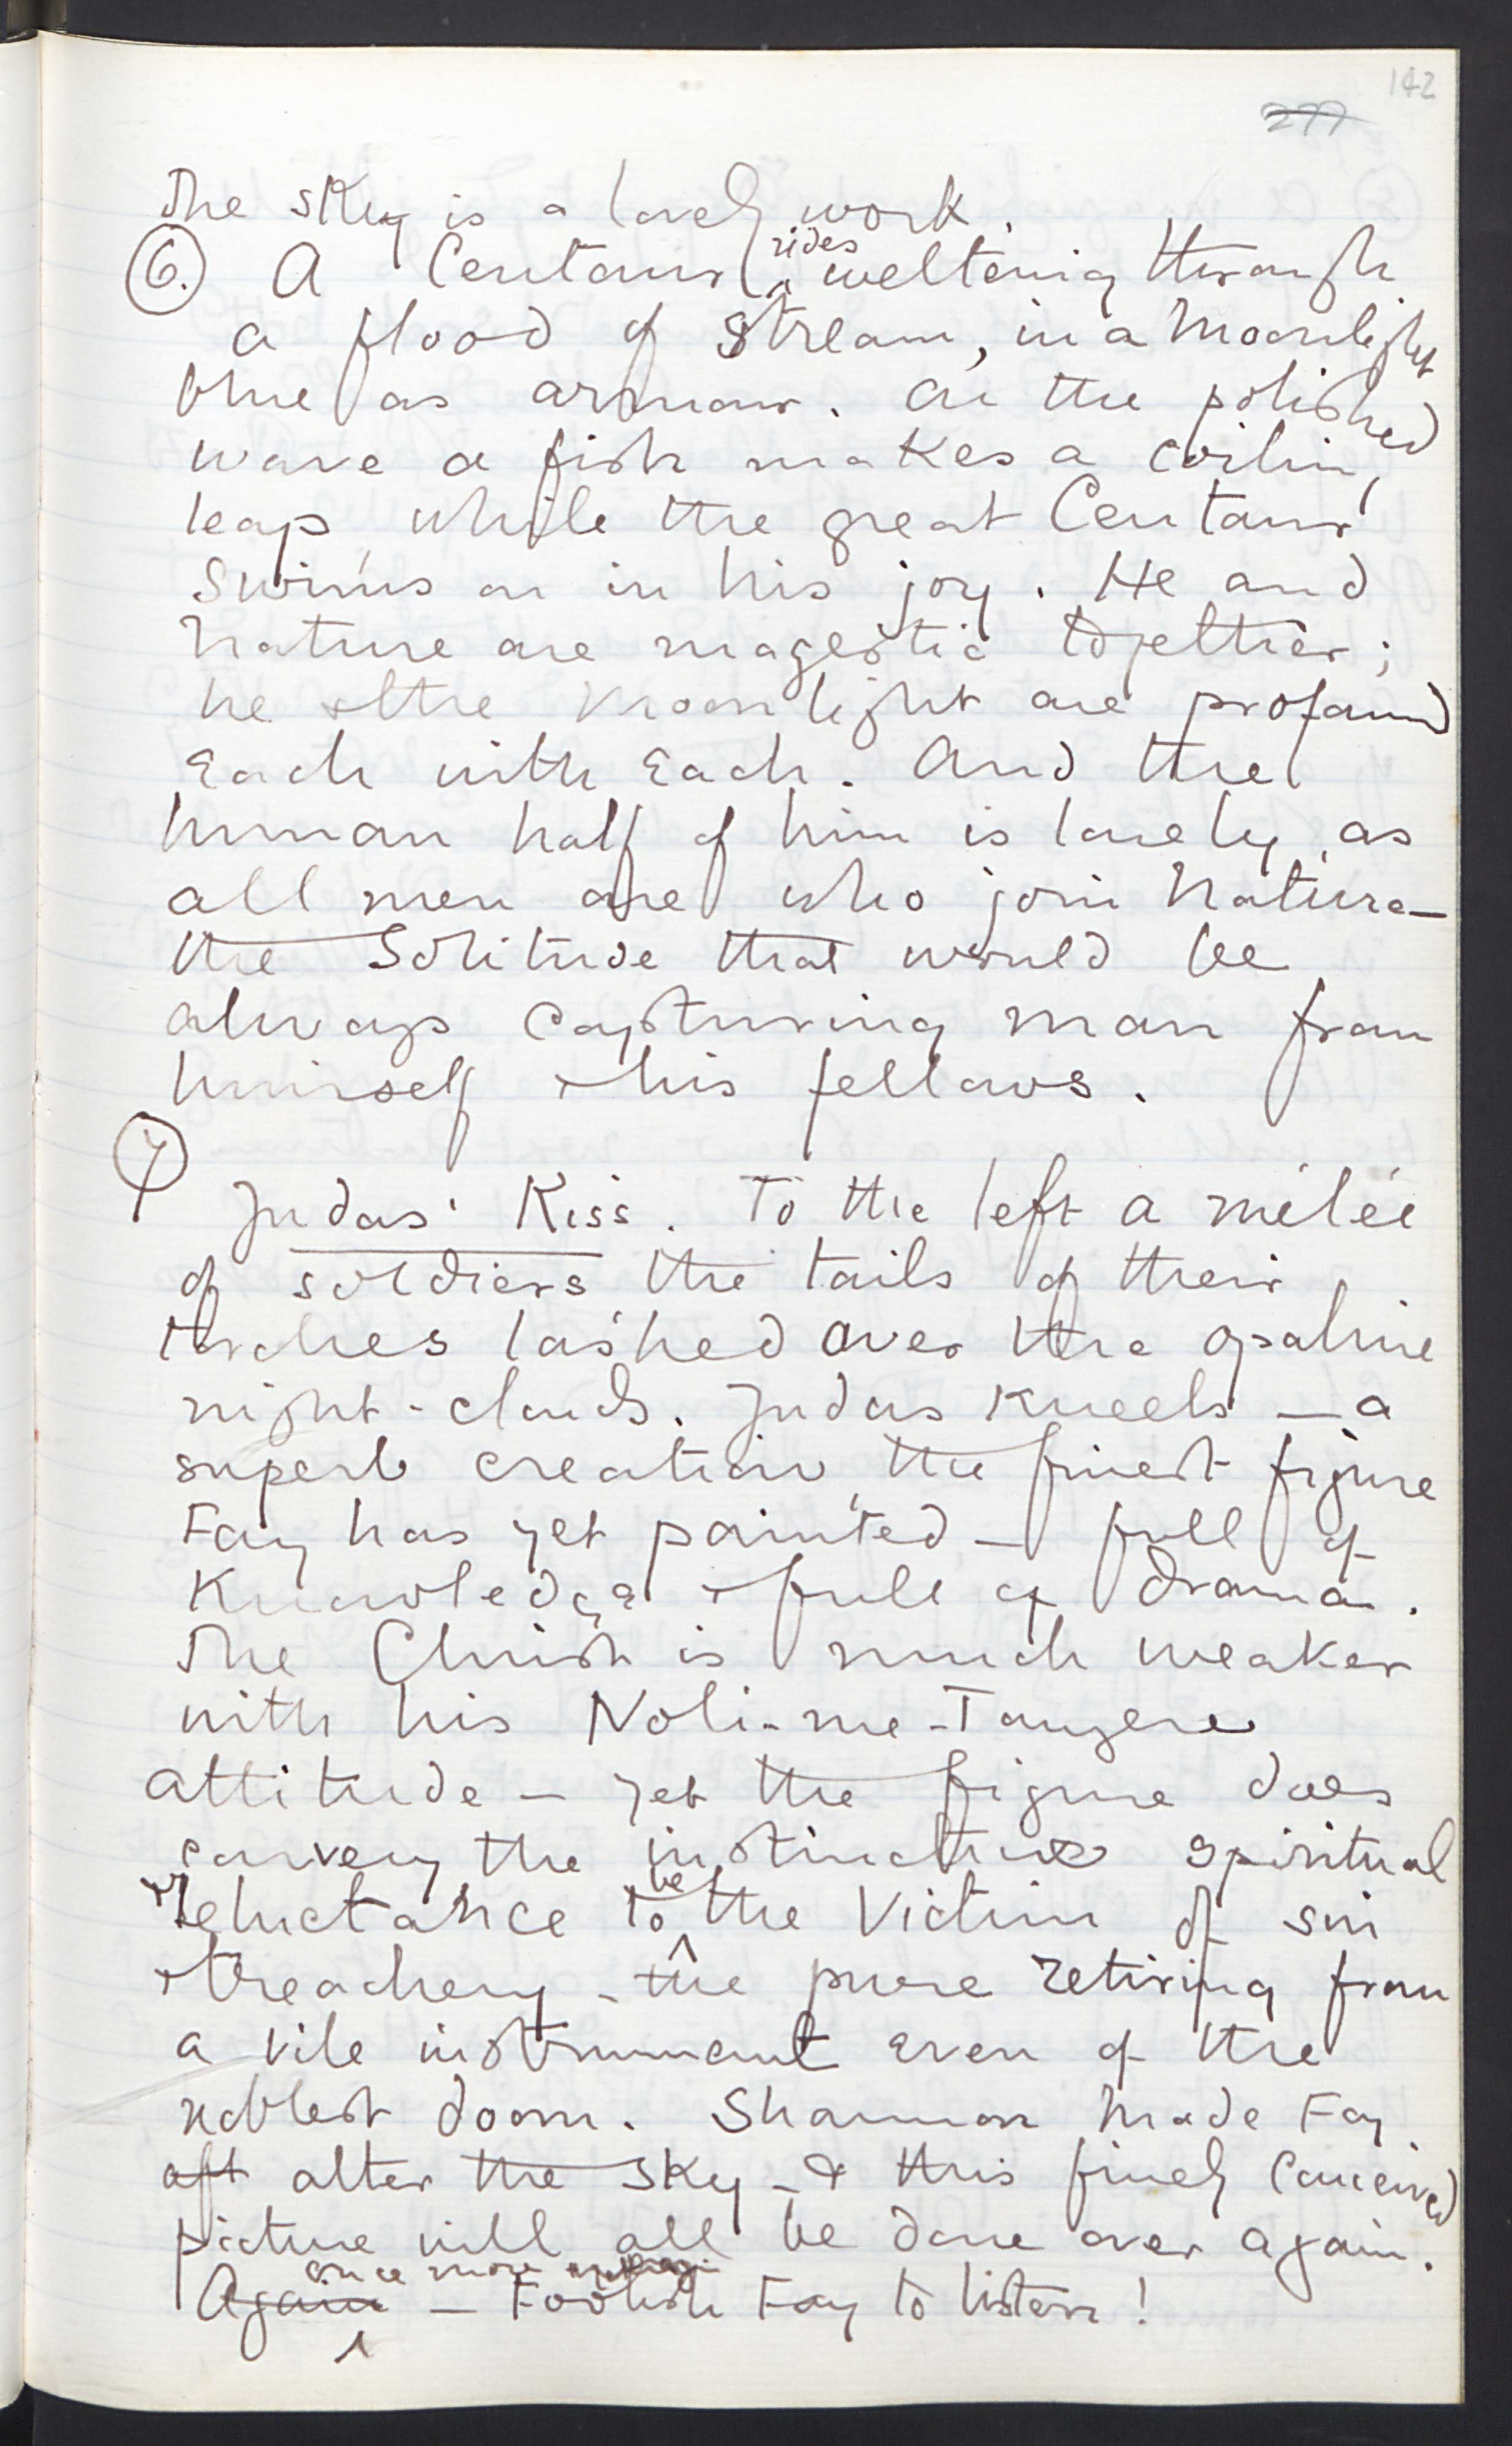 142
277
The sky is a lovely work.
6. A Centaur rides weltering through
a flood of stream, in a Moonlight
blue as armour. On the polished
wave a fish makes a coiling
leap, while the great Centaur
swims on in his joy. He and
Nature are magestic together;
he & the Moonlight are profound
Each with Each. And the
human half of him is lonely, as
all men are who join Nature —
the Solitude that would be
always capturing man from
himself & his fellows.
7
Judas' Kiss. To the left a mêlée
of soldiers the tails of their
torches lashed over the opaline
night-clouds. Judas kneels — a
superb creation, the finest figure
Fay has yet painted — full of
Knowledge & full of drama.
The Christ is much weaker
with his Noli-me-Tangere
attitude — yet the figure does
convey the instinctive spiritual
reluctance to be the Victim of sin
& treachery — the pure retiring from
a vile instrument even of the
noblest doom. Shannon made Fay
aft alter the sky — & this finely conceived
picture will all be done over again.
Again once more — Foolish Fay to listen!